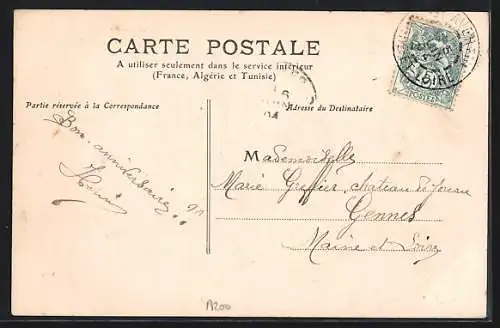 CARTE POSTALE
A utiliser seulement dans le service intérieur
(France, Algérie et Tunisie)
Partie réservée à la Correspondance
Adresse du Destinataire
Bon anniversaire
Mademoiselle
Marie Greffier, château de Joreau
Gennes
Maine et Loire
A200